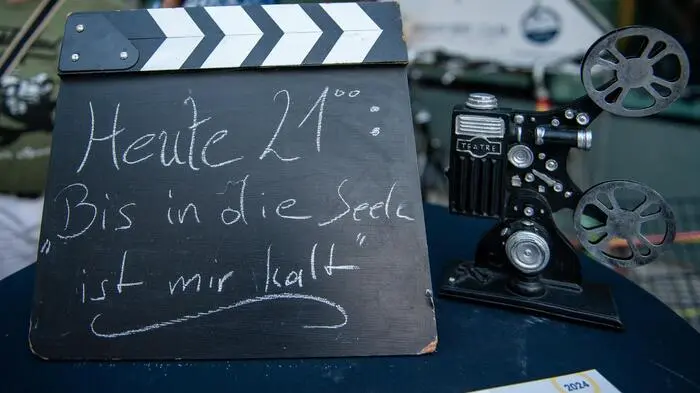 Heute 21⁰⁰:
Bis in die Seele
"ist mir kalt"
TEATRE
2024